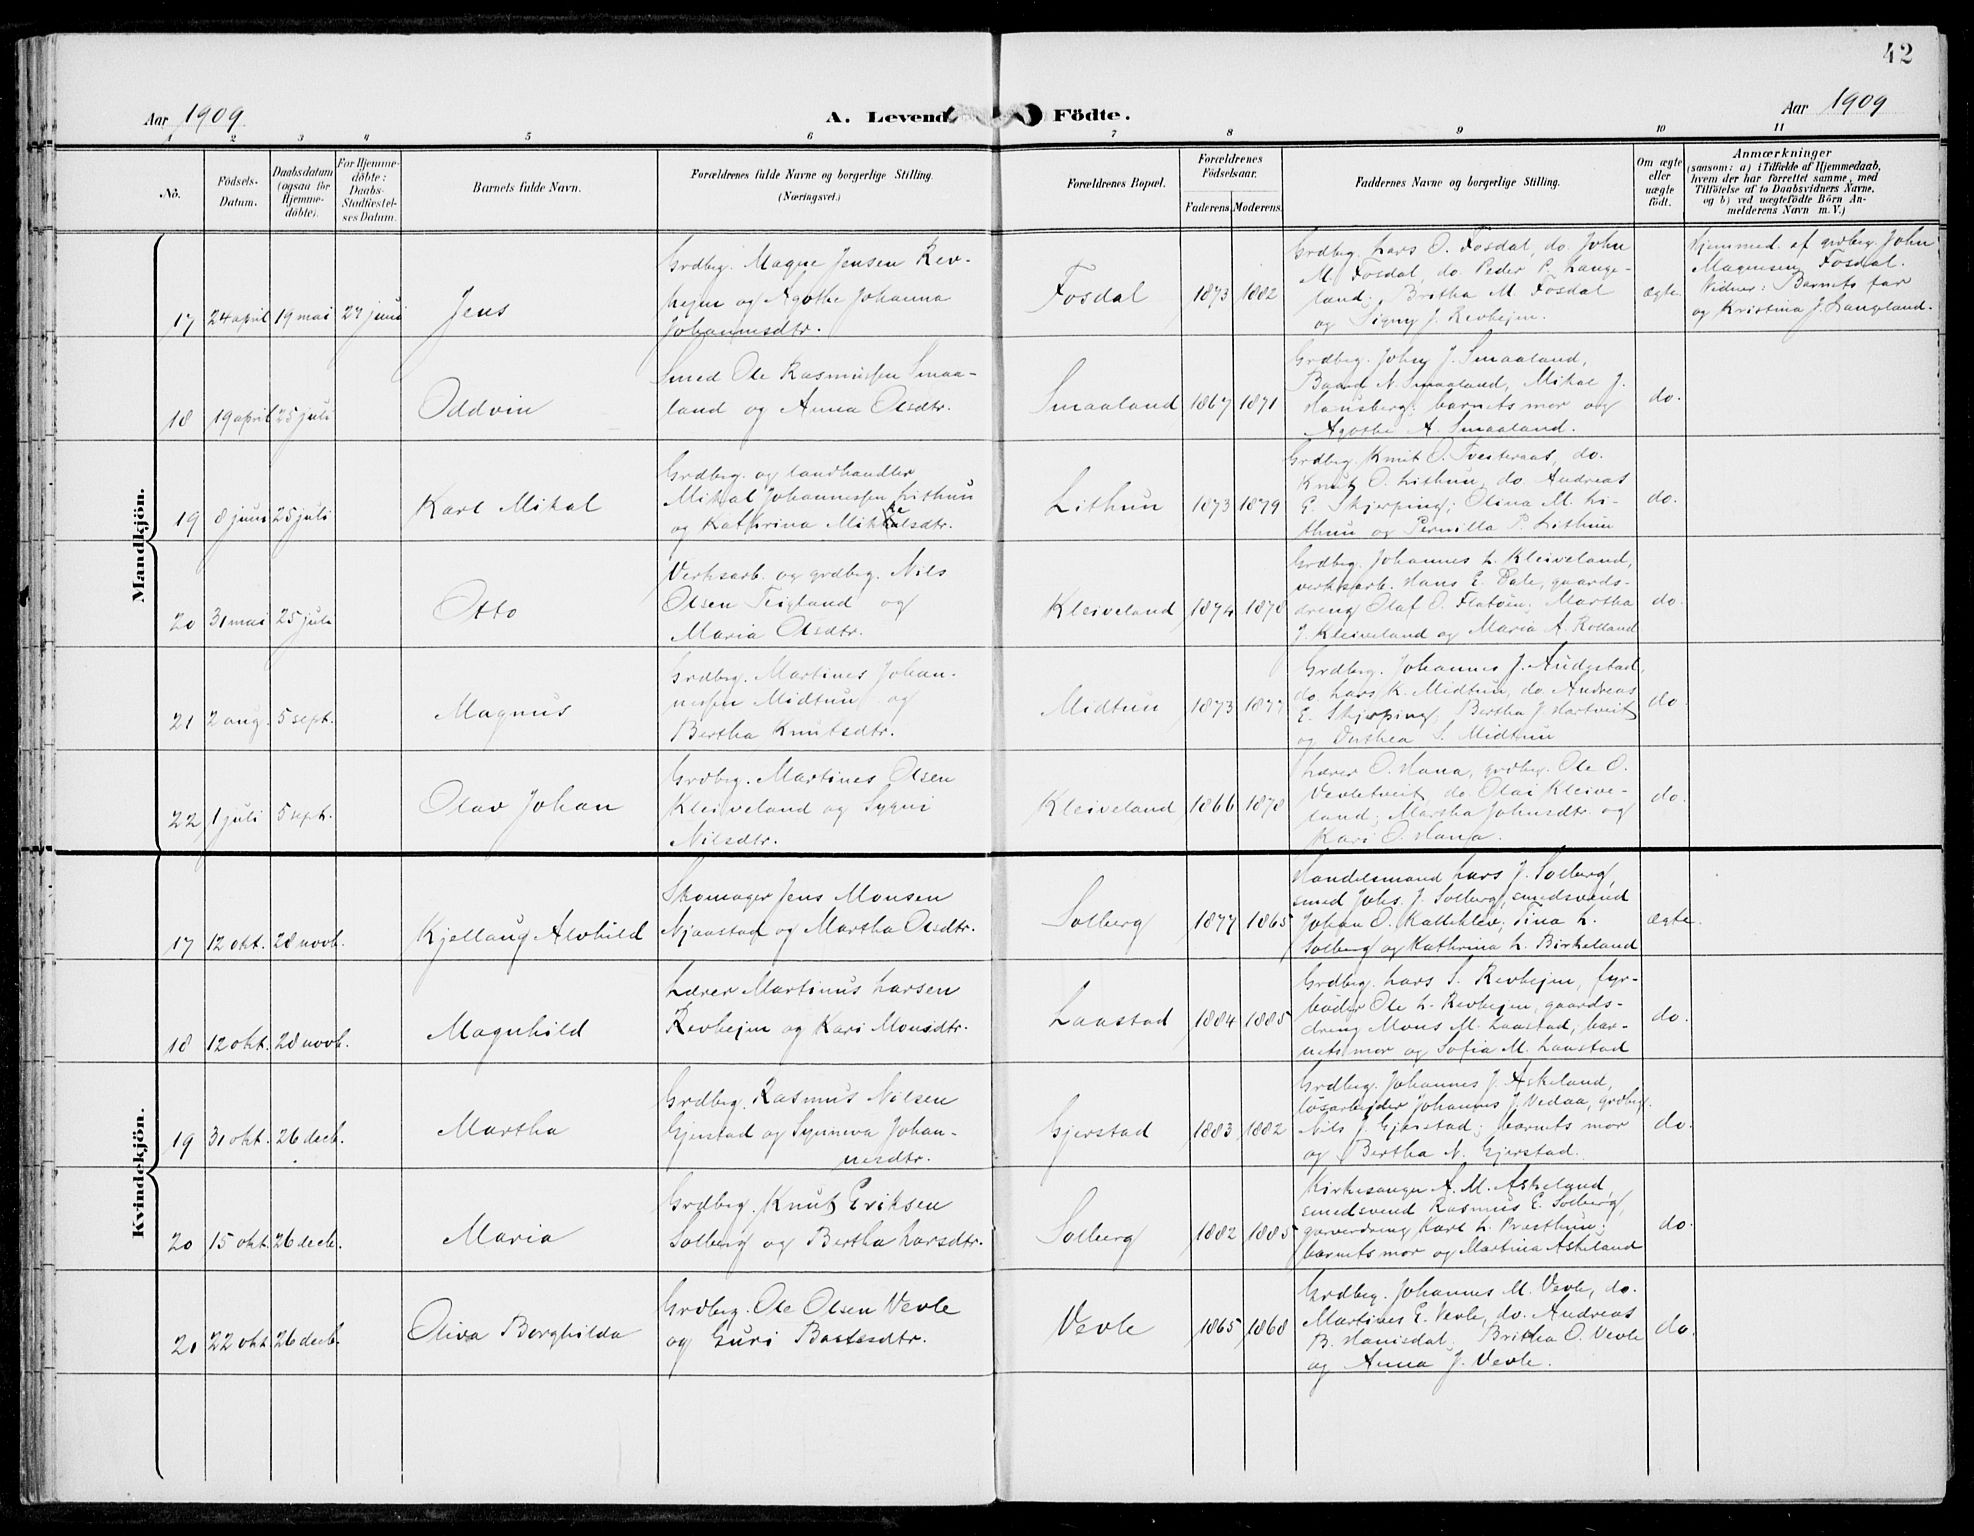 42
Aar 1909
A. Levende Födte.
Aar 1909
1 2 3 4 5 6 7 8 9 10 11
No.
Födsels-
Datum.
Daabsdatum
(ogsaa for
Hjemme-
döbte).
For Hjemme-
döbte:
Daabs-
Stadfæstel-
ses Datum.
Barnets fulde Navn.
Forældrenes fulde Navne og borgerlige Stilling.
(Næringsvei.)
Forældrenes Bopæl.
Forældrenes
Födselsaar.
Faderens Moderens.
Faddernes Navne og borgerlige Stilling.
Om ægte
eller
uægte
födt.
Anmærkninger
(saasom: a) i Tilfælde af Hjemmedaab,
hvem der har forrettet samme, med
Tilföielse af to Daabsvidners Navne,
og b) ved uægtefödte Börn An-
melderens Navn m. V.)
Mandkjön.
17 24 april 19 mai 27 juni Jens
Grdbrg. Magne Jensen Rev-
hejm og Agothe Johanna
Johannesdtr.
Fosdal 1873 1882
Grdbrg. Lars O. Fosdal, do. John
M. Fosdal, do Peder P. Lange-
land; Britha M. Fosdal
og Signy J. Revhejm.
ægte
Hjemmed. af grdbrg. John
Magnesen Fosdal.
Vidner: Barnets far
og Kristina J. Langeland.
18 19 april 25 juli Oddvin
Smed Ole Rasmussen Smaa-
land og Anna Olsdtr.
Smaaland 1867 1871
Grdbrg. John J. Smaaland,
Baard N. Smaaland, Mikal J.
Hausberg; barnets mor og
Agothe A. Smaaland.
do.
19 8 juni 25 juli Karl Mikal
Grdbrg. og landhandler
Mikal Johannessen Lithun
og Kathrina Mikkelsdtr.
Lithun 1873 1879
Grdbrg. Knut O. Tveiteraas, do.
Knut O. Lithun, do Andreas
E. Skjerping; Olina M. Li-
thun og Pernilla P. Lithun
do.
20 31 mai 25 juli Otto
Verksarb. og grdbrg. Nils
Olsen Teigland og
Maria Olsdtr.
Kleiveland 1874 1878
Grdbrg. Johannes L. Kleiveland,
verksarb. Hans E. Dale, gaards-
dreng Olaf O. Flatöen; Martha
J. Kleiveland og Maria A. Rolland
do.
21 2 aug. 5 sept. Magnus
Grdbrg. Martines Johan-
nessen Midtun og
Bertha Knutsdtr.
Midtun 1873 1877
Grdbrg. Johannes J. Audestad,
do. Lars K. Midtun, do. Andreas
E. Skjerping, Bertha J. Hartveit
og Dorthea S. Midtun
do.
22 1 juli 5 sept. Olav Johan
Grdbrg. Martines Olsen
Kleiveland og Sygni
Nilsdtr.
Kleiveland 1866 1878
Lærer O. Hana, grdbrg. Ole O.
Vevletveit, do. Olai Kleive-
land; Martha Johnsdtr og
Kari O. Hana.
do.
Kvindekjön.
17 12 okt. 28 novb. Kjellaug Alvhild
Skomager Jens Monsen
Njaastad og Martha Olsdtr.
Solberg 1877 1865
Handelsmand Lars J. Solberg,
smed Johs. J. Solberg, smedsvend
Johan O. Kattehlev; Tina L.
Solberg og Kathrina L. Birkeland
ægte.
18 12 okt. 28 novb. Magnhild
Lærer Martinus Larsen
Revhejm og Kari Monsdtr.
Laastad 1884 1885
Grdbrg. Lars S. Revhejm, fyr-
böder Ole L. Revhejm, gaards-
dreng Mons M. Laastad, bar-
nets mor og Sofia M. Laastad
do.
19 31 okt. 26 decb. Martha
Grdbrg. Rasmus Nilsen
Gjerstad og Synneva Johan-
nesdtr.
Gjerstad 1883 1882
Grdbrg. Johannes J. Askeland,
lösarbejder Johannes J. Vedaa, grdbrg.
Nils J. Gjerstad; barnets mor
og Bertha N. Gjerstad.
do.
20 15 okt. 26 decb. Maria
Grdbrg. Knut Eriksen
Solberg og Bertha Larsdtr.
Solberg 1882 1885
Kirkesanger A. M. Askeland,
smedsvend Rasmus E. Solberg,
garverdreng Karl L. Prasthun;
barnets mor og Martina Askeland
do.
21 22 okt. 26 decb. Oliva Borghilda
Grdbrg. Ole Olsen Vevle
og Guri Bottesdtr.
Vevle 1865 1868
Grdbrg. Johannes M. Vevle, do.
Martines E. Vevle, do. Andreas
B. Hanisdal; Britha O. Vevle
og Anna J. Vevle.
do.